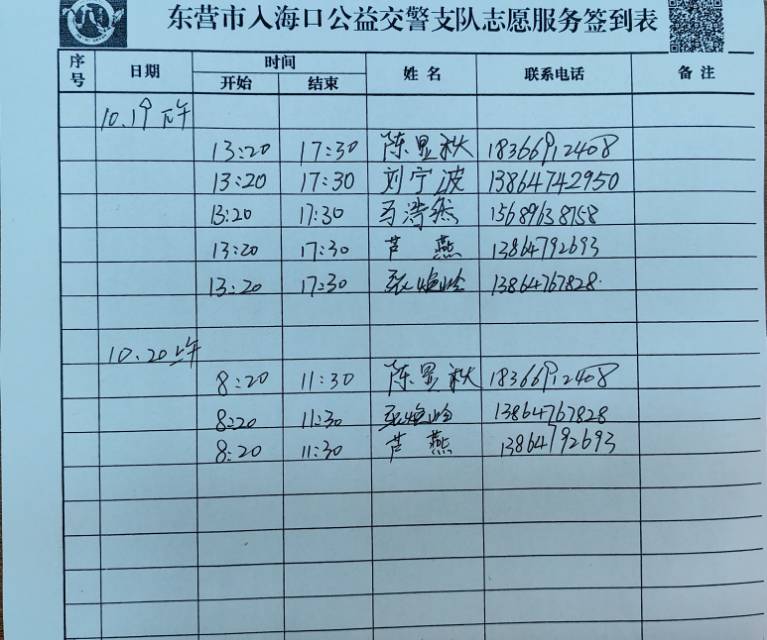 东营市入海口公益交警支队志愿服务签到表
序号 日期 时间 姓名 联系电话 备注
开始 结束
10.19下午
13:20 17:30 陈显秋 18366912408
13:20 17:30 刘宁波 13864742950
13:20 17:30 马涛然 15689638758
13:20 17:30 芦燕 13864792693
13:20 17:30 张 13864767828
10.20上午
8:20 11:30 陈显秋 18366912408
8:20 11:30 张 13864767828
8:20 11:30 芦燕 13864792693